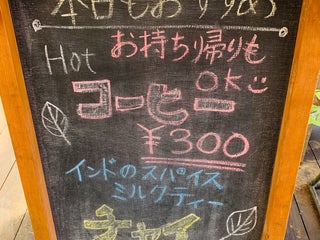 本日もおすすめ
お持ち帰りも
Hot
OK
コーヒー
¥300
インドのスパイス
ミルクティー
チャイ